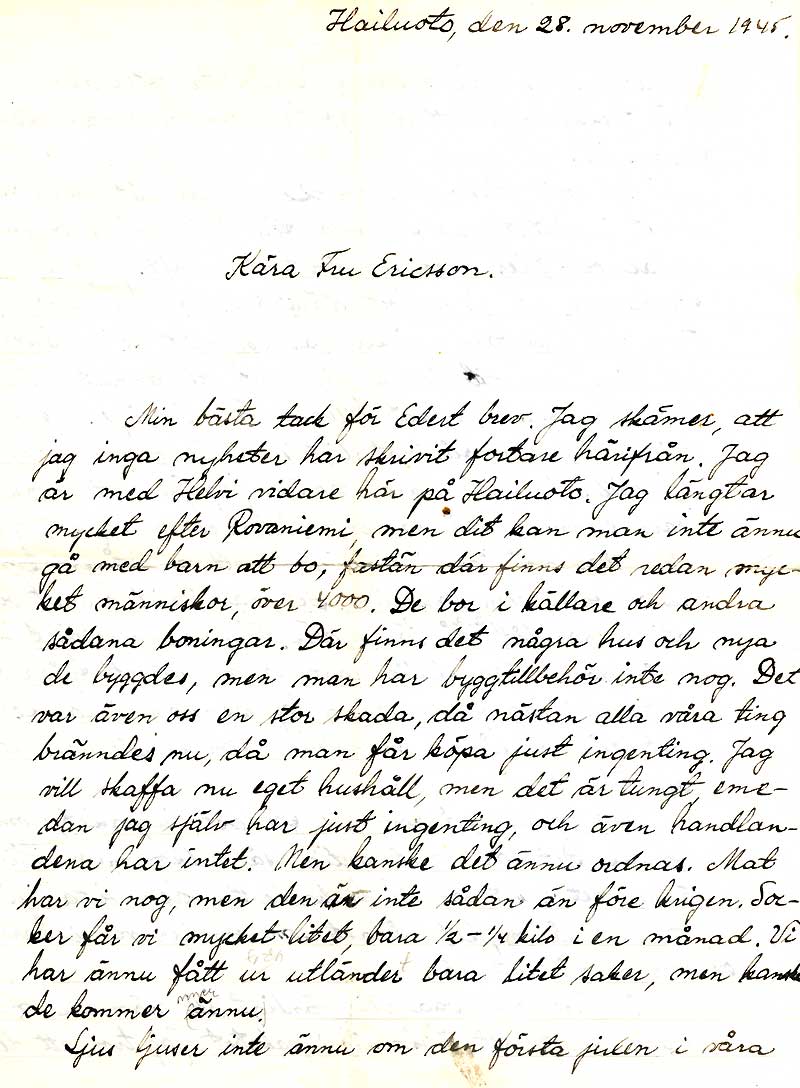 Hailuoto, den 28. november 1945.
Kära Fru Ericsson.
Min bästa tack för Edert brev. Jag skämer, att
jag inga nyheter har skrivit fortare härifrån. Jag
är med Helvi vidare här på Hailuoto. Jag längtar
mycket efter Rovaniemi, men dit kan man inte ännu
gå med barn att bo, fastän där finns det redan myc-
ket människor, över 4000. De bor i källare och andra
sådana boningar. Där finns det några hus och nya
de byggdes, men man har byggtillbehör inte nog. Det
var även oss en stor skada, då nästan alla våra ting
bränndes nu, då man får köpa just ingenting. Jag
vill skaffa nu eget hushåll, men det är tungt, eme-
dan jag själv har just ingenting, och även handlan-
dena har intet. Men kanske det ännu ordnas. Mat
har vi nog, men den är inte sådan än före krigen. Soc-
ker får vi mycket litet, bara 1/2-1/4 kilo i en månad. Vi
har ännu fått ur utländer bara litet saker, men kanske
de kommer mer ännu.
Ljus ljuser inte ännu om den första julen i våra